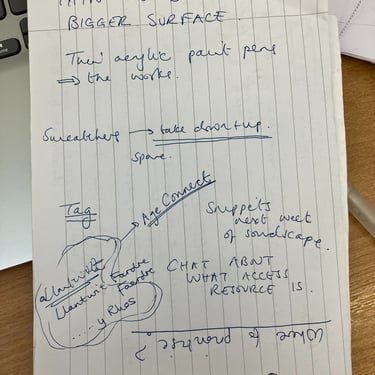 BIGGER SURFACE.
Thin acrylic paint pens
⇒ the works.
Suncatchers → take down + up.
spare.
Tag
Age Connect
Snippets
next week
of soundscape.
Llantwit Fardre
Faerdre
.... y Rhos
CHAT ABNT
WHAT ACCESS
RESOURCE IS.
Where to promise ?